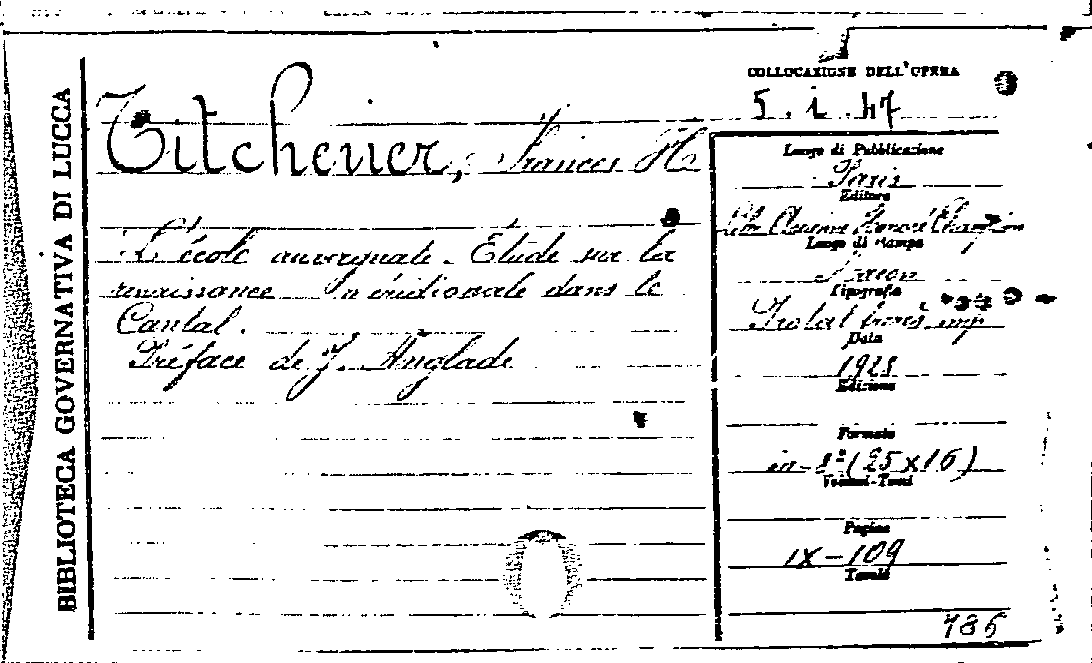 BIBLIOTECA GOVERNATIVA DI LUCCA
COLLOCAZIONE DELL'OPERA
5. i. 47
Titchener, Frances H.
L'école auvergnate. Étude sur la
renaissance méridionale dans le
Cantal.
Préface de J. Anglade
Luogo di Pubblicazione
Paris
Editore
Lib. Ancienne Honoré Champion
Luogo di stampa
Macon
Tipografia
Protat frères imp
Data
1928
Edizione
Formato
in-8º (25x16)
Volumi-Tomi
Pagine
IX-109
Tavole
785